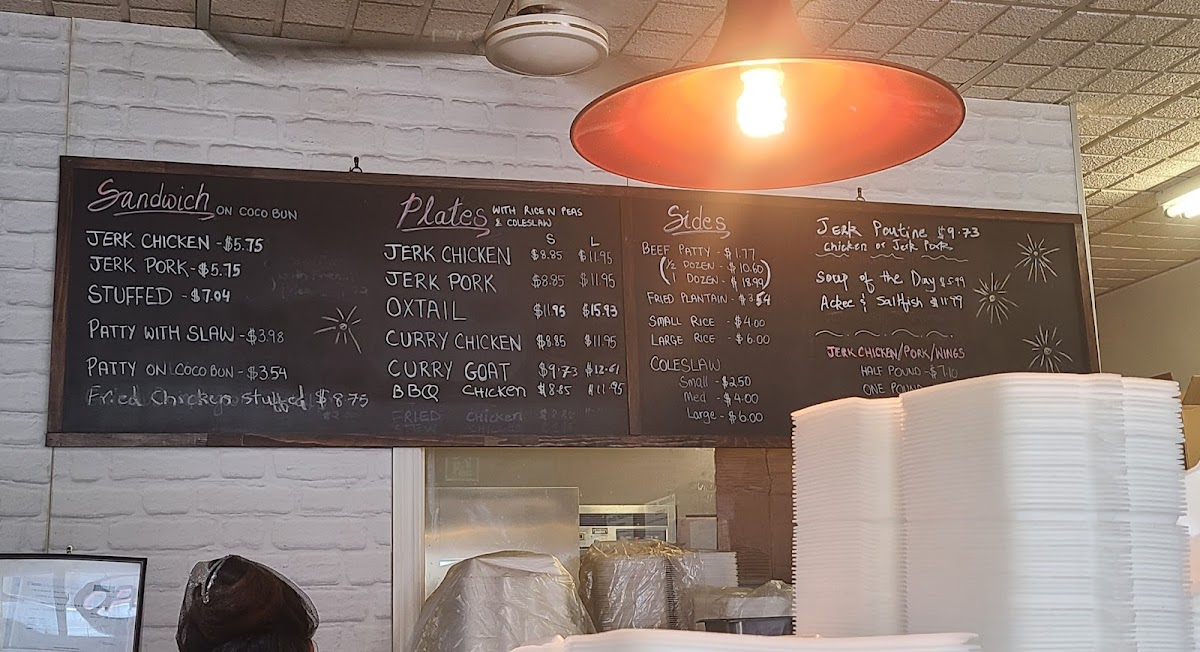 Sandwich ON COCO BUN
JERK CHICKEN - $5.75
JERK PORK - $5.75
STUFFED - $7.04
PATTY WITH SLAW - $3.98
PATTY ON COCO BUN - $3.54
Fried Chicken stuffed $8.75
Plates WITH RICE N PEAS
& COLESLAW
S L
JERK CHICKEN $8.85 $11.95
JERK PORK $8.85 $11.95
OXTAIL $11.95 $15.93
CURRY CHICKEN $8.85 $11.95
CURRY GOAT $9.73 $12.61
BBQ Chicken $8.85 $11.95
FRIED Chicken
Sides
BEEF PATTY - $1.77
(1/2 DOZEN - $10.60)
(1 DOZEN - $18.99)
FRIED PLANTAIN - $3.54
SMALL RICE - $4.00
LARGE RICE - $6.00
COLESLAW
Small - $2.50
Med - $4.00
Large - $6.00
Jerk Poutine $9.73
chicken or Jerk Pork
Soup of the Day $5.99
Ackee & Saltfish $11.99
JERK CHICKEN/PORK/WINGS
HALF POUND - $7.10
ONE POUND